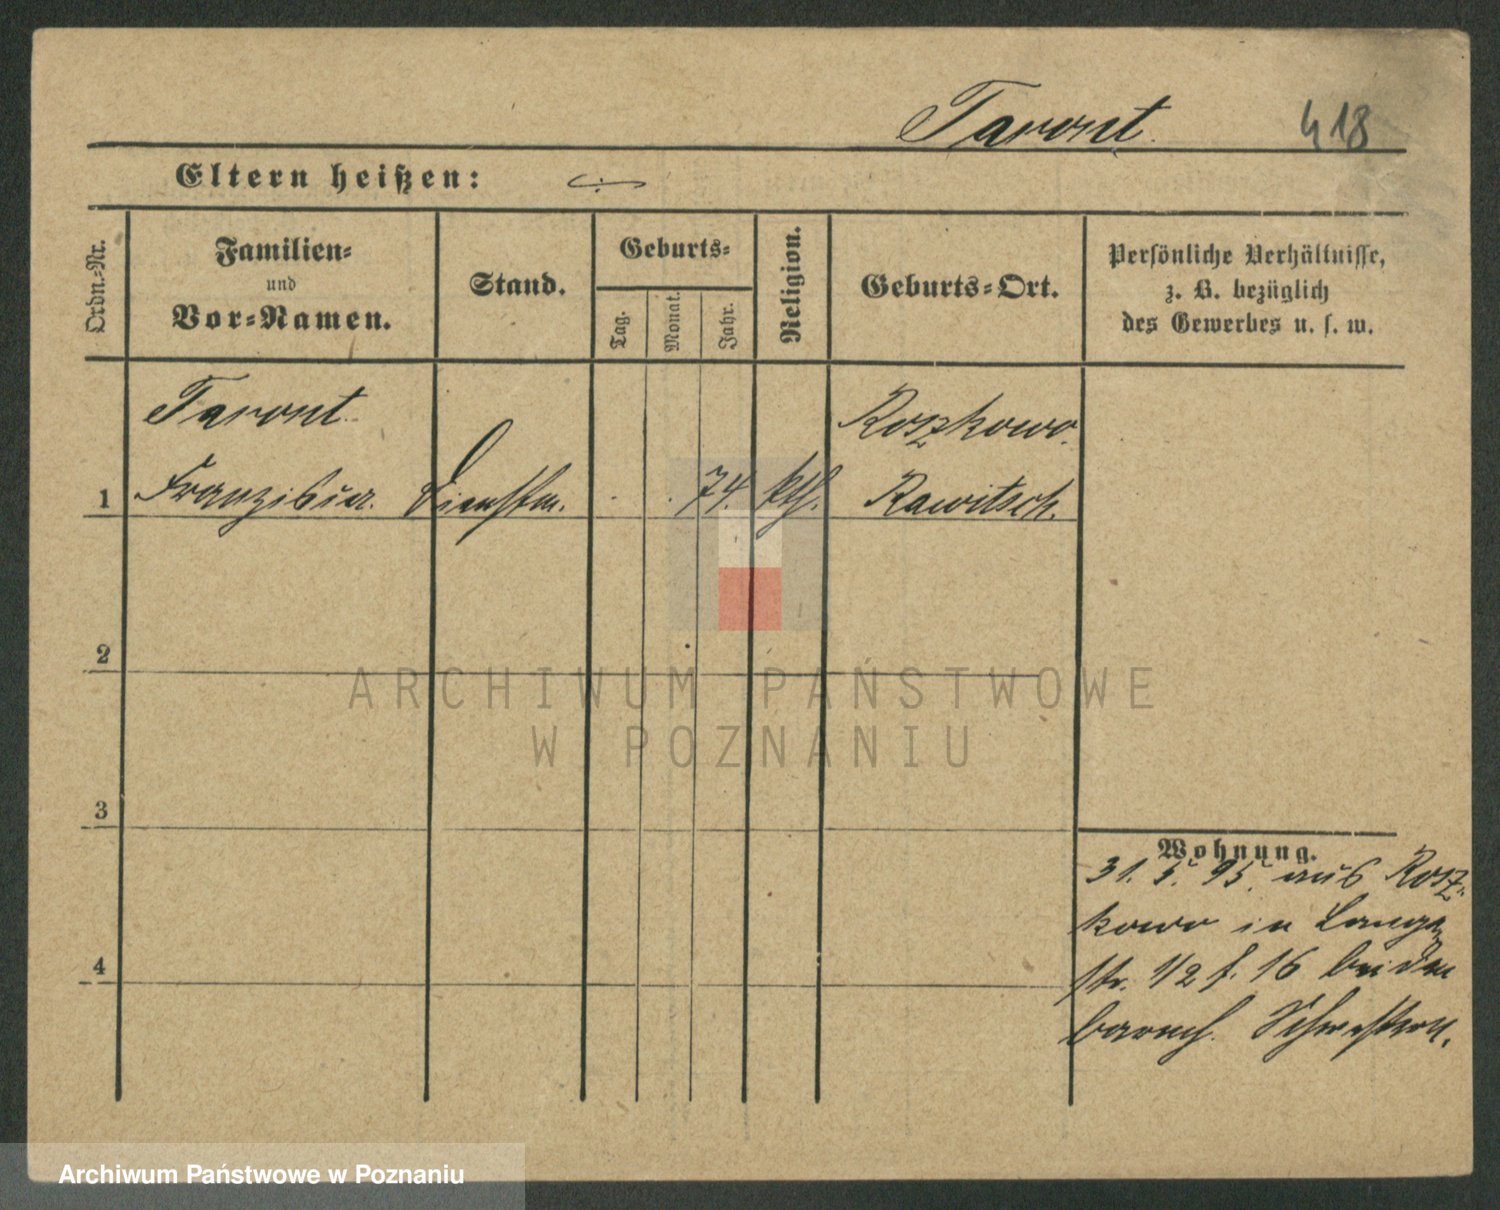 Taront.
418
Eltern heißen:
Ordn.-Nr.
Familien-
und
Vor-Namen.
Stand.
Geburts-
Tag.
Monat.
Jahr.
Religion.
Geburts-Ort.
Persönliche Verhältnisse,
z. B. bezüglich
des Gewerbes u. s. w.
Taront
Roszkowo.
1 Dienstm. 74. kth. Rawitsch.
2
3
4
Wohnung.
31. 5. 95. aus Rosz-
kowo in Lange
str. 1/2 f. 16 bei den
barmh. Schwestern.
ARCHIWUM PAŃSTWOWE
W POZNANIU
Archiwum Państwowe w Poznaniu